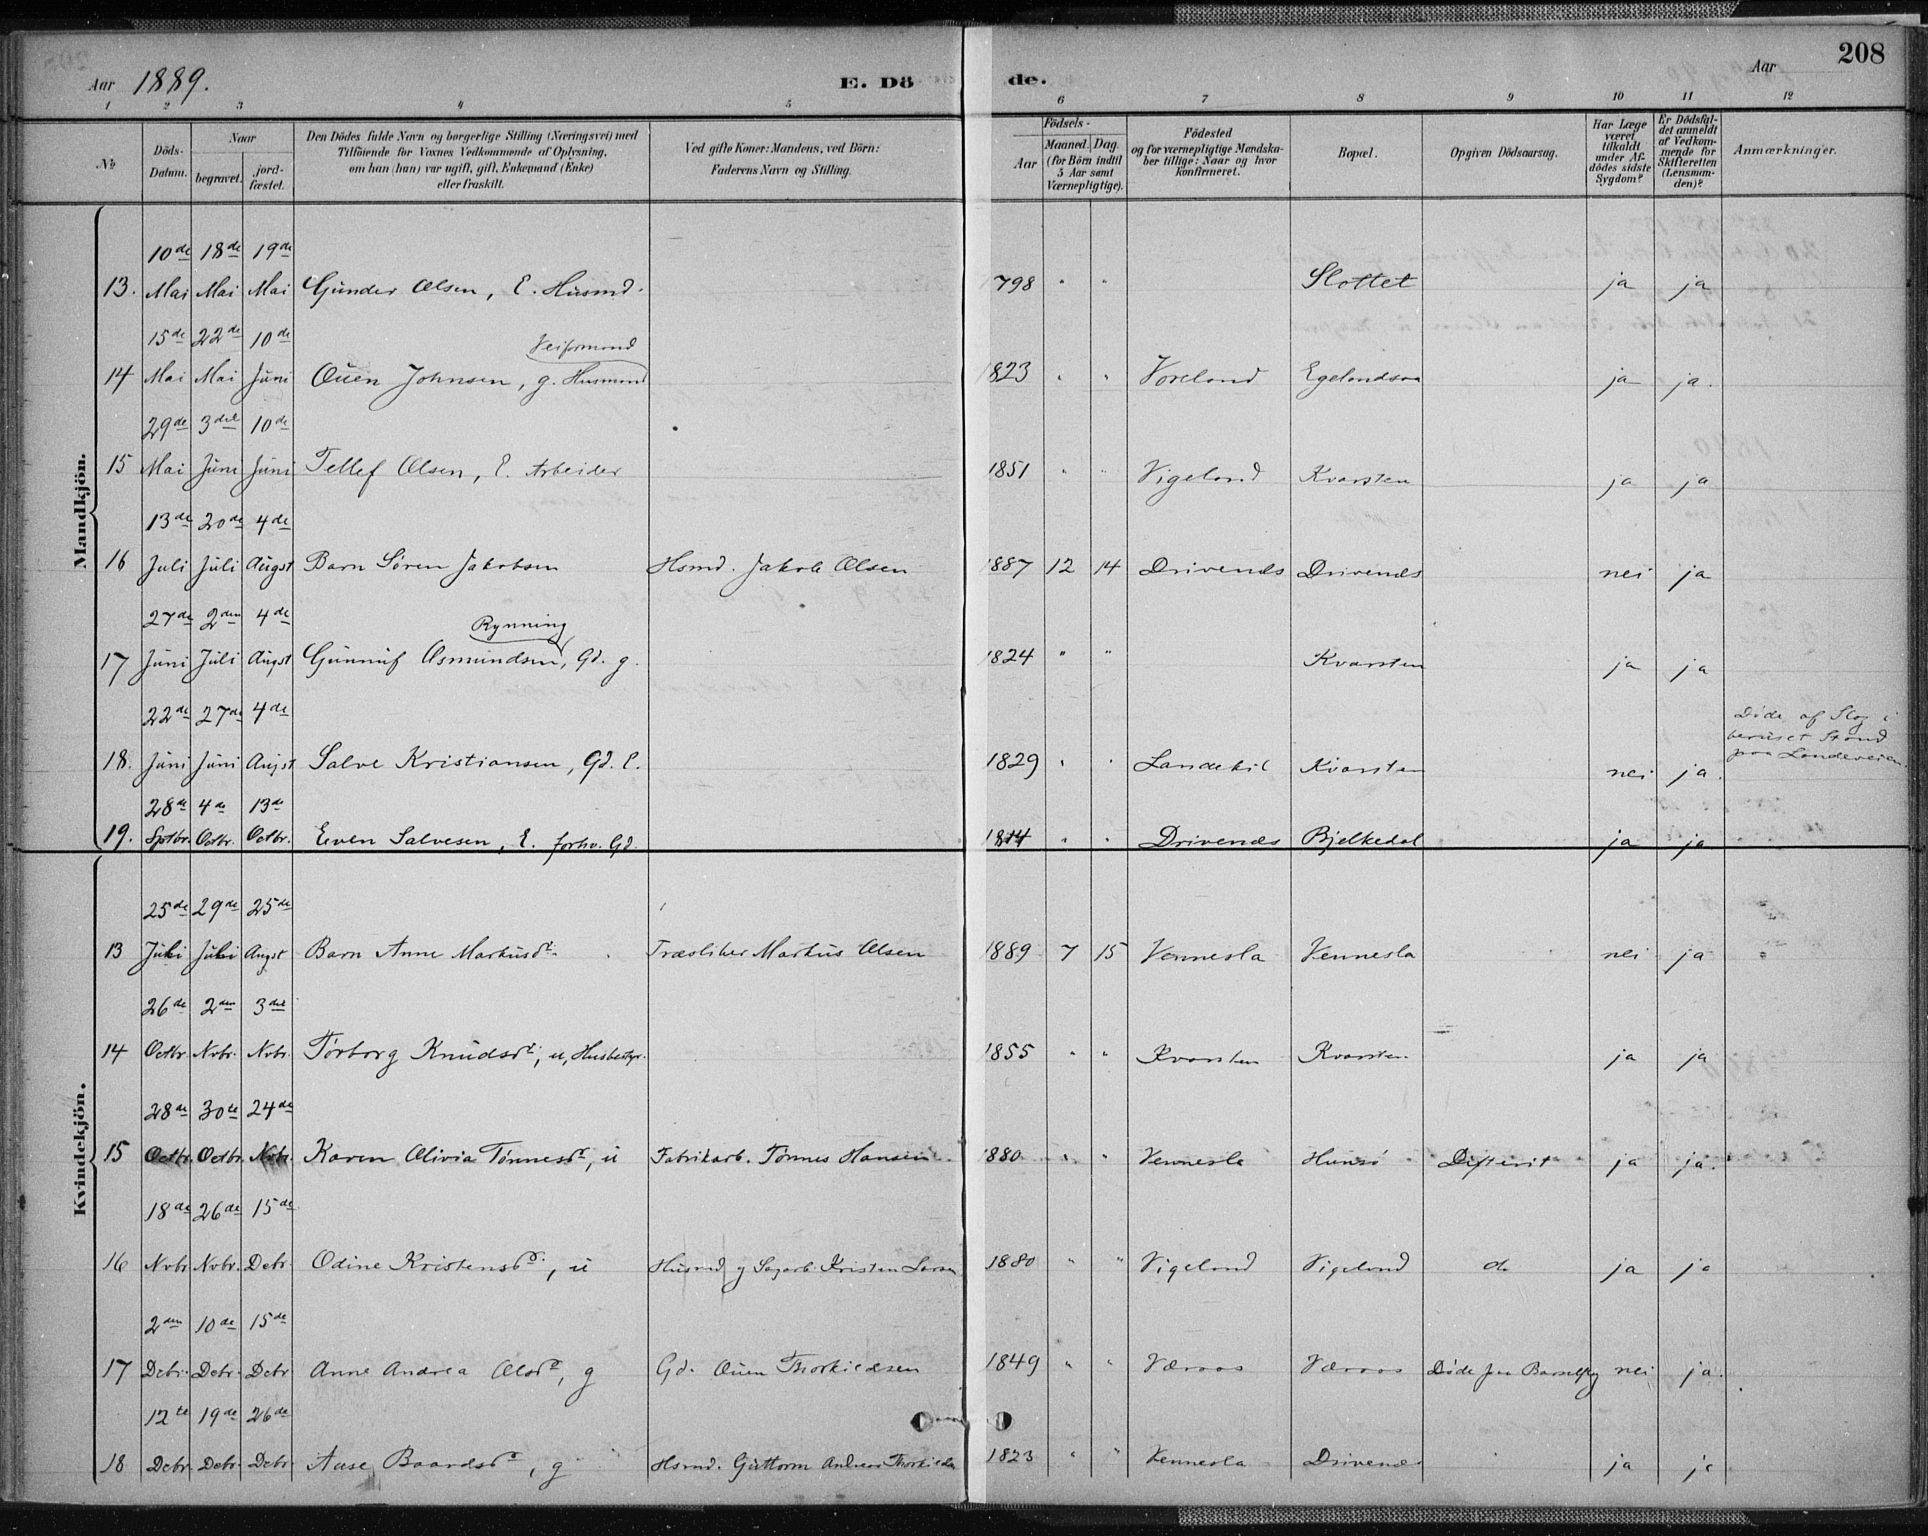 208
Aar 1889.
E. Döde.
Aar
1 2 3 4 5 6 7 8 9 10 11 12
№
Döds-Datum.
Naar
begravet.
jord-fæstet.
Den Dödes fulde Navn og borgerlige Stilling (Næringsvei) med
Tilföiende for Voxnes Vedkommende af Oplysning,
om han (hun) var ugift, gift, Enkemand (Enke)
eller fraskilt.
Ved gifte Koner: Mandens, ved Börn:
Faderens Navn og Stilling.
Födsels-
Aar
Maaned. Dag.
(for Börn indtil
5 Aar samt
Værnepligtige).
Födested
og for værnepligtige Mandska-
ber tillige: Naar og hvor
konfirmeret.
Bopæl.
Opgiven Dödsaarsag.
Har Læge
været
tilkaldt
under Af-
dödes sidste
Sygdom?
Er Dödsfal-
det anmeldt
af Vedkom-
mende for
Skifteretten
(Lensman-
den)?
Anmærkninger.
Mandkjön.
10de 18de 19de
13. Mai Mai Mai Gunder Olsen, E. Husmd. 1798 " " Slottet ja ja
15de 22de 10de Veiformand
14 Mai Mai Juni Ouen Johnsen, g. Husmand 1823 " " Voreland Egelandsaa ja ja.
29de 3die 10de
15 Mai Juni Juni Tellef Olsen, E. Arbeider 1851 " " Vigeland Kvarsten ja ja
13de 20de 4de
16 Juli Juli Augst Barn Sören Jakobsen Hsmd. Jakob Olsen 1887 12 14 Drivenæs Drivenæs nei ja
27de 2den 4de Rynning
17 Juni Juli Augst Gunnuf Asmundsen, Gd. g. 1824 " " Kvarsten ja ja
22de 27de 4de
18. Juni Juni Augst Salve Kristiansen, Gd. E. 1829 " " Landekil Kvarsten nei ja. Döde af Slag i
beruset Stand
paa Landeveien.
28de 4de 13de
19. Sptbr. Octbr. Octbr. Even Salvesen, E. forhv. Gd. 1814 " " Drivenæs Bjelkedal ja ja
Kvindekjön.
25de 29de 25de
13 Juli Juli Augst Barn Anne Markusdr. Træsliber Markus Olsen 1889 7 15 Vennesla Vennesla nei ja
26de 2den 3die
14 Octbr. Nvbr. Nvbr. Torborg Knudsdr., u, Husbestyr. 1855 " " Kvarsten Kvarsten ja ja
28de 30te 24de
15 Octbr. Octbr. Nvbr. Karen Olivia Tönnesdr, u Fabrikarb. Tönnes Hansen 1880 " " Vennesla Hunsö Difterit ja ja.
18de 26de 15de
16 Nvbr. Nvbr. Debr. Odine Kristensdr., u Husmd og Sagarb. Kristen Larsen 1880 " " Vigeland Vigeland do ja ja
2den 10de 15de
17 Debr. Debr. Debr Anne Andrea Olsdr, g Gd. Ouen Thorkildsen 1849 " " Væraas Væraas Döde paa Barselseng nei ja.
12te 19de 26de
18 Debr. Debr. Debr. Aase Baardsdr, g Hsmd. Guttorm Andreas Thorkildsen 1823 " " Vennesla Drivenæs ja ja